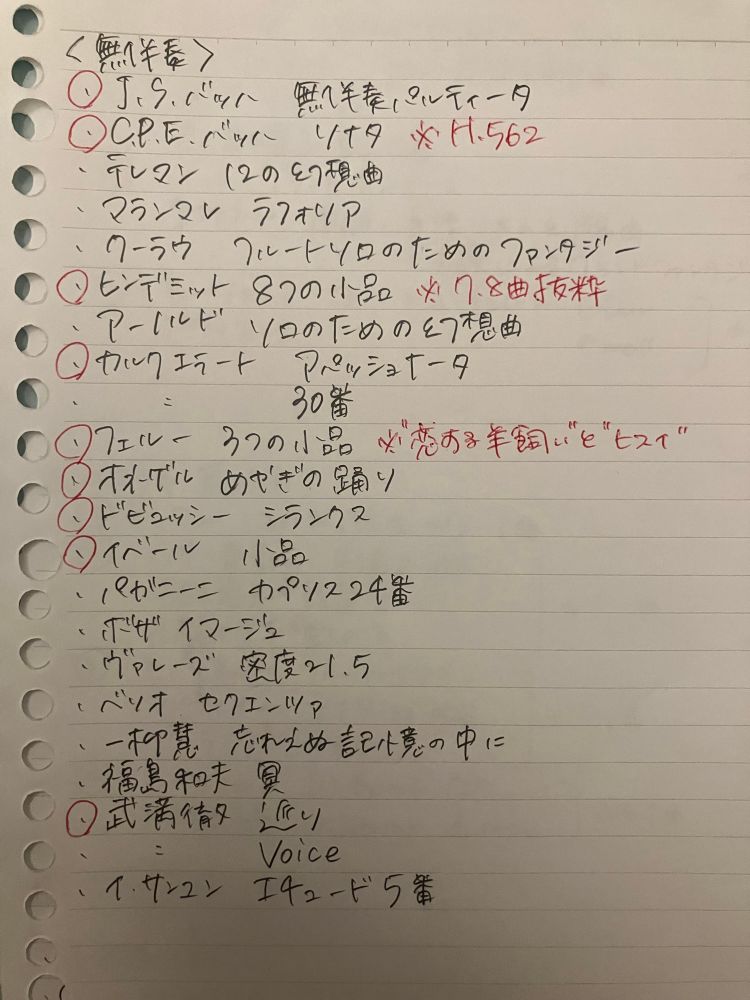 <無伴奏>
・J.S.バッハ 無伴奏パルティータ
・C.P.E.バッハ ソナタ ※H.562
・テレマン 12の幻想曲
・マランマレ ラフォリア
・クーラウ フルートソロのためのファンタジー
・ヒンデミット 8つの小品 ※7.8曲抜粋
・アーノルド ソロのための幻想曲
・カルクエラート アパッショナータ
・ 〃 30番
・フェルー 3つの小品 ※"恋する羊飼い"と"ヒスイ"
・オネーゲル めやぎの踊り
・ドビュッシー シランクス
・イベール 小品
・パガニーニ カプリス24番
・ボザ イマージュ
・ヴァレーズ 密度21.5
・ベリオ セクエンツァ
・一柳慧 忘れえぬ記憶の中に
・福島和夫 冥
・武満徹 巡り
・ 〃 Voice
・イ.サンユン エチュード5番